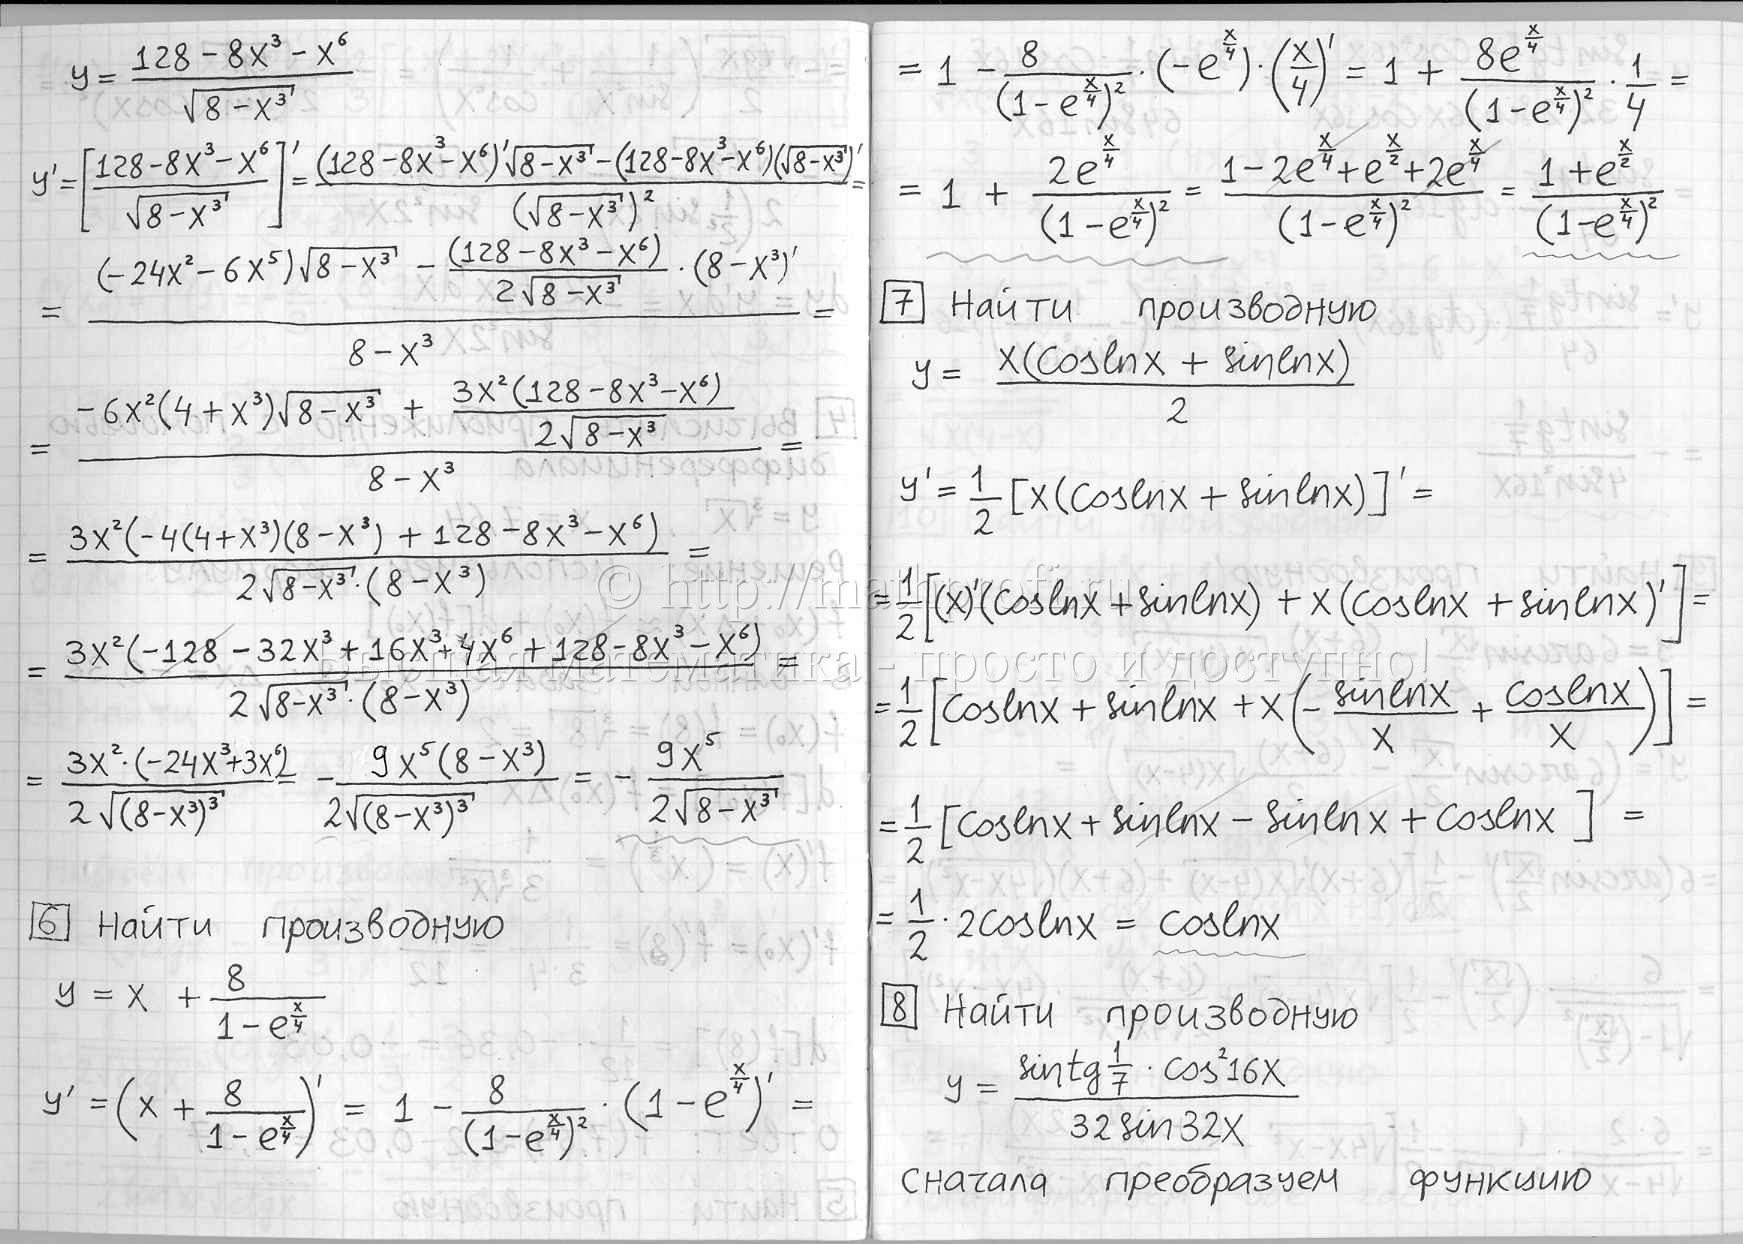 y = (128 − 8x³ − x⁶)/√(8 − x³)
y' = [(128 − 8x³ − x⁶)/√(8 − x³)]' = ((128 − 8x³ − x⁶)'√(8 − x³) − (128 − 8x³ − x⁶)(√(8 − x³))')/(√(8 − x³))² =
= ((−24x² − 6x⁵)√(8 − x³) − (128 − 8x³ − x⁶)/(2√(8 − x³)) · (8 − x³)')/(8 − x³) =
= (−6x²(4 + x³)√(8 − x³) + 3x²(128 − 8x³ − x⁶)/(2√(8 − x³)))/(8 − x³) =
= 3x²(−4(4 + x³)(8 − x³) + 128 − 8x³ − x⁶)/(2√(8 − x³) · (8 − x³)) =
= 3x²(−128 − 32x³ + 16x³ + 4x⁶ + 128 − 8x³ − x⁶)/(2√(8 − x³) · (8 − x³)) =
= 3x² · (−24x³ + 3x⁶)/(2√((8 − x³)³)) = − 9x⁵(8 − x³)/(2√((8 − x³)³)) = − 9x⁵/(2√(8 − x³))
6 Найти производную
y = x + 8/(1 − e^(x/4))
y' = (x + 8/(1 − e^(x/4)))' = 1 − 8/(1 − e^(x/4))² · (1 − e^(x/4))' =
= 1 − 8/(1 − e^(x/4))² · (−e^(x/4)) · (x/4)' = 1 + 8e^(x/4)/(1 − e^(x/4))² · 1/4 =
= 1 + 2e^(x/4)/(1 − e^(x/4))² = (1 − 2e^(x/4) + e^(x/2) + 2e^(x/4))/(1 − e^(x/4))² = (1 + e^(x/2))/(1 − e^(x/4))²
7 Найти производную
y = x(cos lnx + sin lnx)/2
y' = 1/2 [x(cos lnx + sin lnx)]' =
= 1/2 [(x)'(cos lnx + sin lnx) + x(cos lnx + sin lnx)'] =
= 1/2 [cos lnx + sin lnx + x(− sin lnx/x + cos lnx/x)] =
= 1/2 [cos lnx + sin lnx − sin lnx + cos lnx] =
= 1/2 · 2cos lnx = cos lnx
8 Найти производную
y = (sin tg 1/7 · cos²16x)/(32 sin 32x)
сначала преобразуем функцию
© http://mathprofi.ru
Высшая математика - просто и доступно!